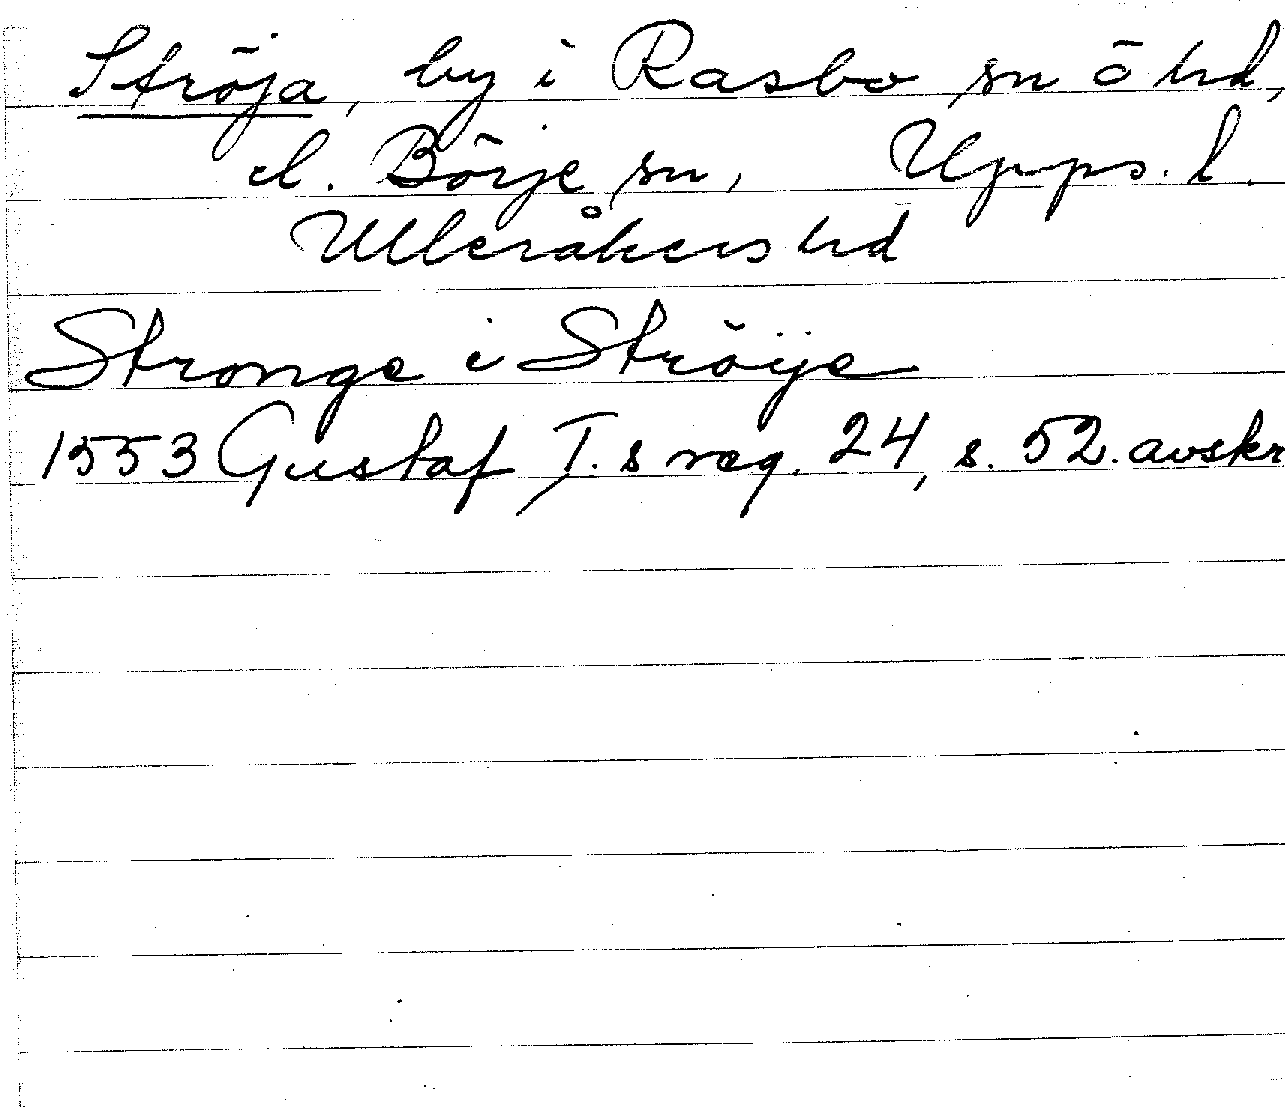 Ströja, by i Rasbo sn o hd,
el. Börje sn, Upps. l.
Ulleråkers hd
Stronge i Ströije
1553 Gustaf I.s reg. 24, s. 52. avskr